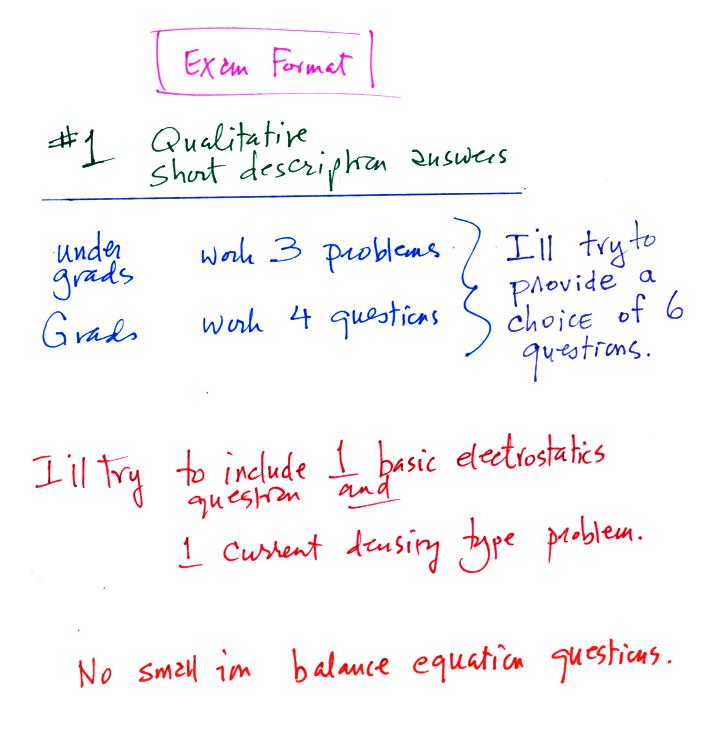 Exam Format
#1 Qualitative
short description answers
under
grads
work 3 problems
Grads
work 4 questions
I'll try to
provide a
choice of 6
questions.
I'll try to include 1 basic electrostatics
question and
1 current density type problem.
No small ion balance equation questions.